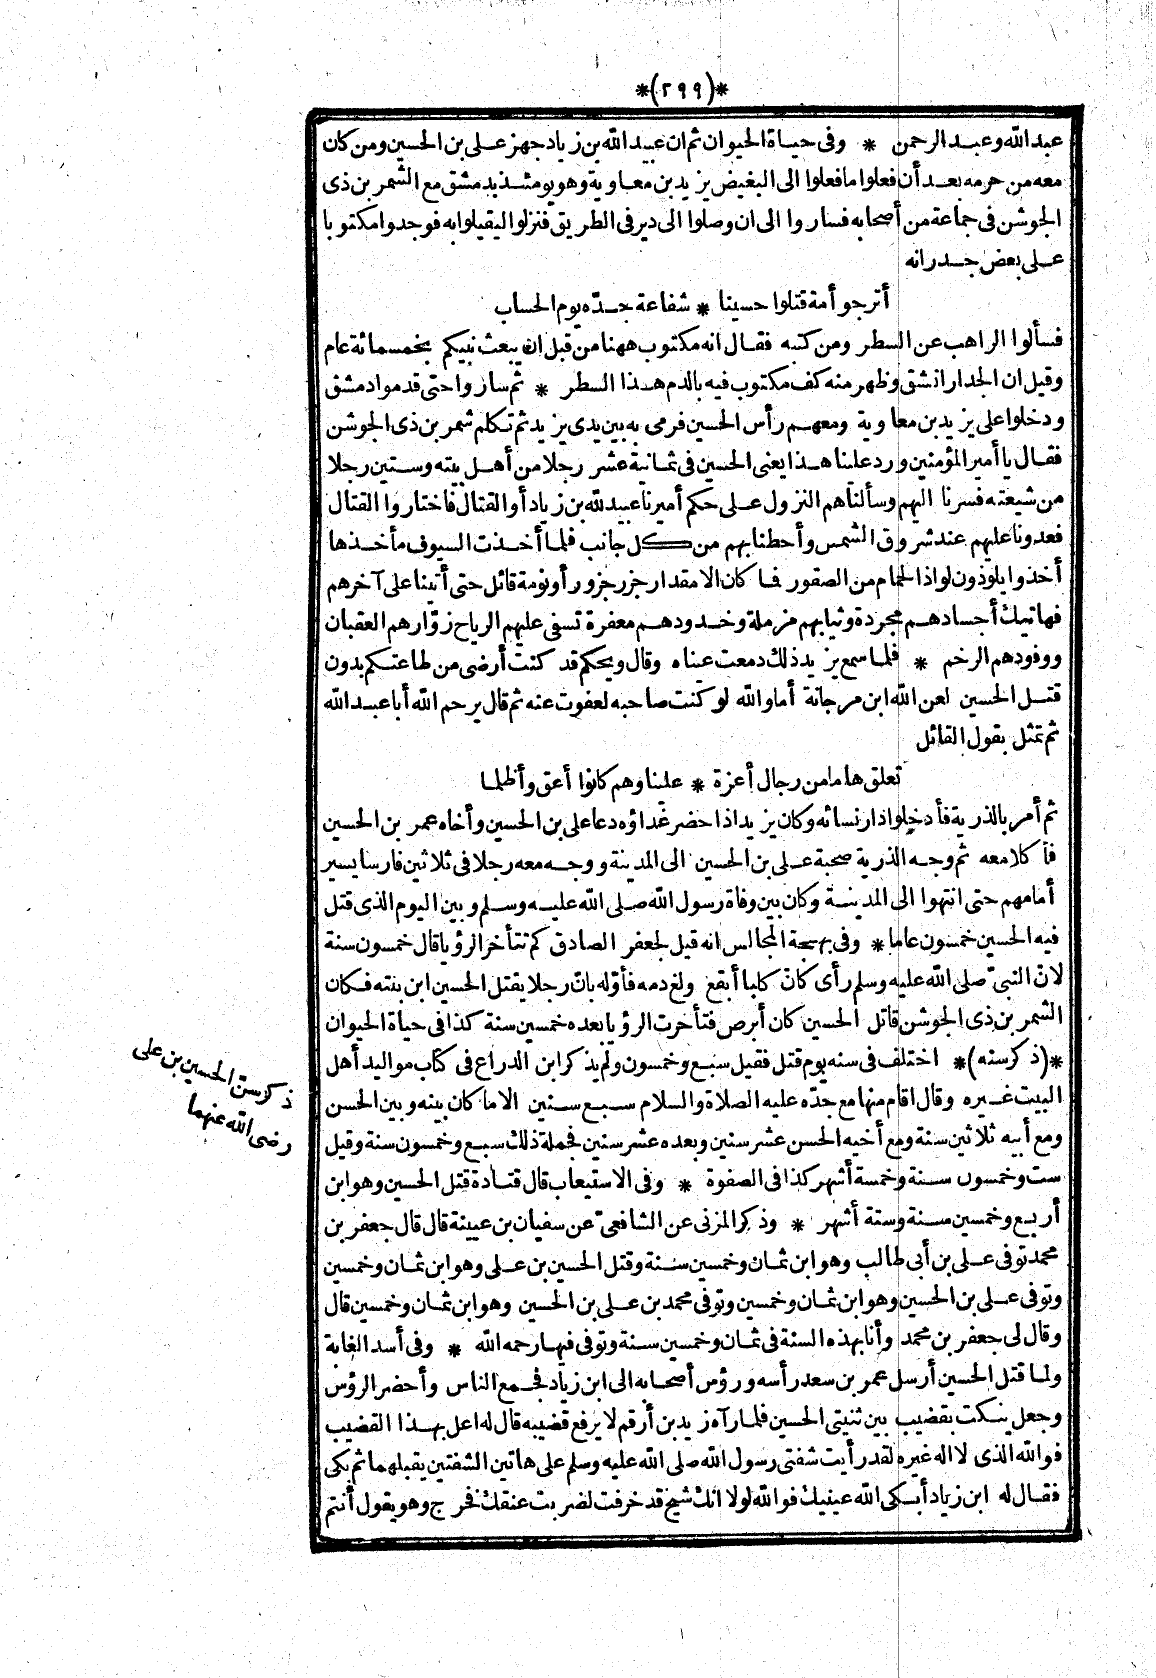 *(٢٩٩)*
عبد الله وعبد الرحمن * وفى حياة الحيوان ثم ان عبيد الله بن زياد جهز على بن الحسين ومن كان
معه من حرمه بعد أن فعلوا ما فعلوا الى البغيض يزيد بن معاوية وهو يومئذ بدمشق مع الشمر بن ذى
الجوشن فى جماعة من أصحابه فساروا الى ان وصلوا الى دير فى الطريق فنزلوا ليقيلوا به فوجدوا مكتوبا
على بعض جدرانه
أترجو أمة قتلوا حسينا * شفاعة جدّه يوم الحساب
فسألوا الراهب عن السطر ومن كتبه فقال انه مكتوب ههنا من قبل ان يبعث نبيكم بخمسمائة عام
وقيل ان الجدار انشق وظهر منه كف مكتوب فيه بالدم هذا السطر * ثم ساروا حتى قدموا دمشق
ودخلوا على يزيد بن معاوية ومعهم رأس الحسين فرمى به بين يدى يزيد ثم تكلم شمر بن ذى الجوشن
فقال يا أمير المؤمنين ورد علينا هذا يعنى الحسين فى ثمانية عشر رجلا من أهل بيته وستين رجلا
من شيعته فسرنا اليهم وسألناهم النزول على حكم أميرنا عبيد لله بن زياد أو القتال فاختاروا القتال
فعدونا عليهم عند شروق الشمس وأحطنا بهم من كل جانب فلما أخذت السيوف مأخذها
أخذوا يلوذون لواذ الحمام من الصقور فما كان الا مقدار جزر جزور أو نومة قائل حتى أتينا على آخرهم
فهاتيك أجسادهم مجردة وثيابهم مزملة وخدودهم معفرة تسفى عليهم الرياح زوّارهم العقبان
ووفودهم الرخم * فلما سمع يزيد ذلك دمعت عيناه وقال ويحكم قد كنت أرضى من طاعتكم بدون
قتل الحسين لعن الله ابن مرجانة أما والله لو كنت صاحبه لعفوت عنه ثم قال يرحم الله أبا عبد الله
ثم تمثل بقول القائل
تعلق هاما من رجال أعزة * علينا وهم كانوا أعق وأظلما
ثم أمر بالذرية فأدخلوا دار نسائه وكان يزيد اذا حضر غداؤه دعا على بن الحسين وأخاه عمر بن الحسين
فأكلا معه ثم وجه الذرية صحبة على بن الحسين الى المدينة ووجه معه رجلا فى ثلاثين فارسا يسير
أمامهم حتى انتهوا الى المدينة وكان بين وفاة رسول الله صلى الله عليه وسلم وبين اليوم الذى قتل
فيه الحسين خمسون عاما * وفى بهجة المجالس انه قيل لجعفر الصادق كم تتأخر الرؤيا قال خمسون سنة
لانّ النبىّ صلى الله عليه وسلم رأى كانّ كلبا أبقع ولغ دمه فأوّله بانّ رجلا يقتل الحسين ابن بنته فكان
الشمر بن ذى الجوشن قاتل الحسين كان أبرص فتأخرت الرؤيا بعده خمسين سنة كذا فى حياة الحيوان
*(ذكر سنه)* اختلف فى سنه يوم قتل فقيل سبع وخمسون ولم يذكر ابن الدراع فى كتاب مواليد أهل
البيت غيره وقال اقام منها مع جدّه عليه الصلاة والسلام سبع سنين الا ما كان بينه وبين الحسن
ومع أبيه ثلاثين سنة ومع أخيه الحسن عشر سنين وبعده عشر سنين فجملة ذلك سبع وخمسون سنة وقيل
ست وخمسون سنة وخمسة أشهر كذا فى الصفوة * وفى الاستيعاب قال قتادة قتل الحسين وهو ابن
أربع وخمسين سنة وستة أشهر * وذكر المزنى عن الشافعىّ عن سفيان بن عيينة قال قال جعفر بن
محمد توفى على بن أبى طالب وهو ابن ثمان وخمسين سنة وقتل الحسين بن على وهو ابن ثمان وخمسين
وتوفى على بن الحسين وهو ابن ثمان وخمسين وتوفى محمد بن على بن الحسين وهو ابن ثمان وخمسين قال
وقال لى جعفر بن محمد وأنا بهذه السنة فى ثمان وخمسين سنة وتوفى فيها رحمه الله * وفى أسد الغابة
ولما قتل الحسين أرسل عمر بن سعد رأسه ورؤس أصحابه الى ابن زياد فجمع الناس وأحضر الرؤس
وجعل ينكت بقضيب بين ثنيتى الحسين فلما رآه زيد بن أرقم لا يرفع قضيبه قال له اعل بهذا القضيب
فوالله الذى لا اله غيره لقد رأيت شفتى رسول الله صلى الله عليه وسلم على هاتين الشفتين يقبلهما ثم بكى
فقال له ابن زياد أبكى الله عينيك فوالله لولا انك شيخ قد خرفت لضربت عنقك فخرج وهو يقول أنتم
ذكر سن الحسين بن على
رضى الله عنهما